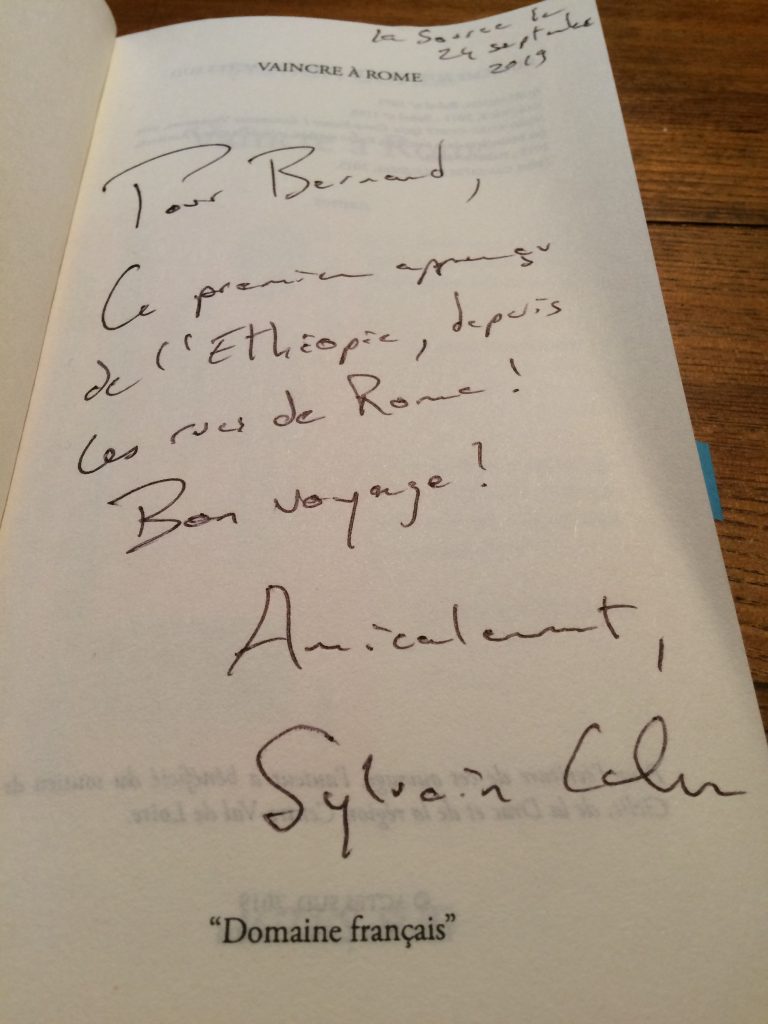 La Source le
24 septembre
2019
VAINCRE À ROME
Pour Bernard,
Ce premier apperçu
de l'Ethiopie, depuis
les rues de Rome !
Bon voyage !
Amicalement,
Sylvain
"Domaine français"